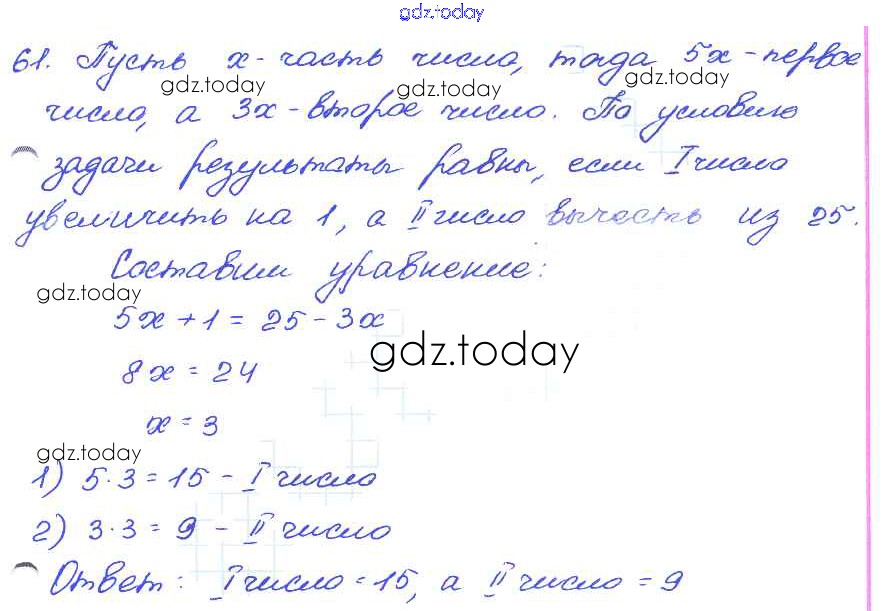 gdz.today
61. Пусть x - часть числа, тогда 5x - первое
gdz.today gdz.today
число, а 3x - второе число. По условию
gdz.today gdz.today
задачи результаты равны, если I число
увеличить на 1, а II число вычесть из 25.
Составим уравнение:
gdz.today
5x + 1 = 25 - 3x
gdz.today
8x = 24
x = 3
gdz.today
1) 5·3 = 15 - I число
2) 3·3 = 9 - II число
Ответ: I число = 15, а II число = 9